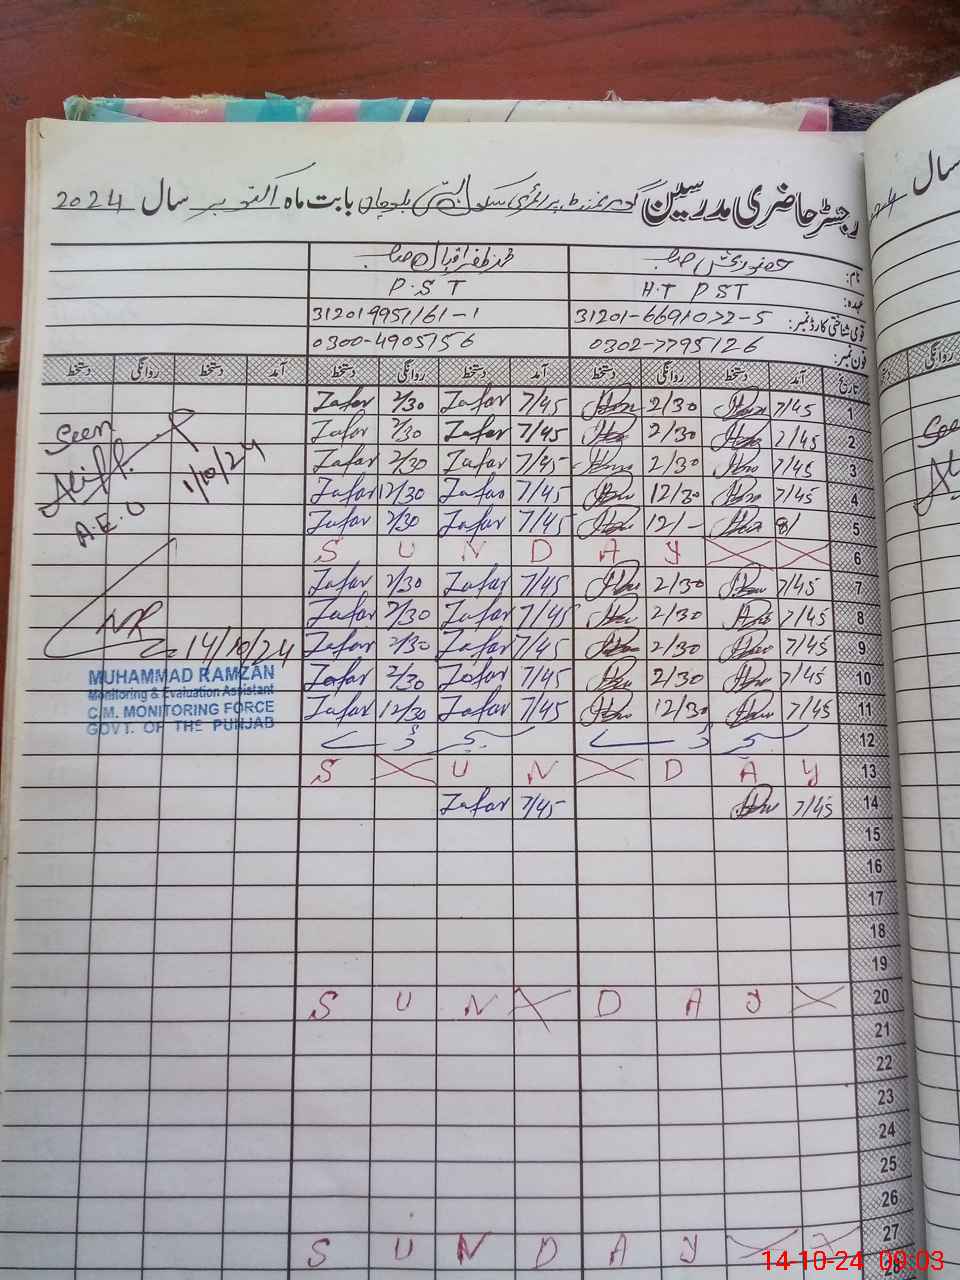 رجسٹر حاضری مدرسین گورنمنٹ پرائمری سکول بستی بلوچاں بابت ماہ اکتوبر سال 2024
نام: صاحب محمد ظفر اقبال صاحب
عہدہ: H.T PST P.S T
قومی شناختی کارڈ نمبر: 31201-6691072-5 312019951161-1
فون نمبر: 0302-7795126 0300-4905756
تاریخ آمد دستخط روانگی دستخط آمد دستخط روانگی دستخط آمد دستخط روانگی دستخط
1 7/45 2/30 7/45 Zafar 2/30 Zafar
2 7/45 2/30 7/45 Zafar 2/30 Zafar
3 7/45 2/30 7/45 Zafar 2/30 Zafar
4 7/45 12/30 7/45 Zafar 12/30 Zafar
5 8/ 12/- 7/45 Zafar 2/30 Zafar
6 S U N D A Y
7 7/45 2/30 7/45 Zafar 2/30 Zafar
8 7/45 2/30 7/45 Zafar 2/30 Zafar
9 7/45 2/30 7/45 Zafar 2/30 Zafar
10 7/45 2/30 7/45 Zafar 2/30 Zafar
11 7/45 12/30 7/45 Zafar 12/30 Zafar
12
13 S U N D A Y
14 7/45 7/45 Zafar
15
16
17
18
19
20 S U N D A Y
21
22
23
24
25
26
27 S U N D A Y
28
Seen
A.E.O
1/10/24
14/10/24
MUHAMMAD RAMZAN
Monitoring & Evaluation Assistant
C.M. MONITORING FORCE
GOVT. OF THE PUNJAB
سال
روانگی
14-10-24 09:03